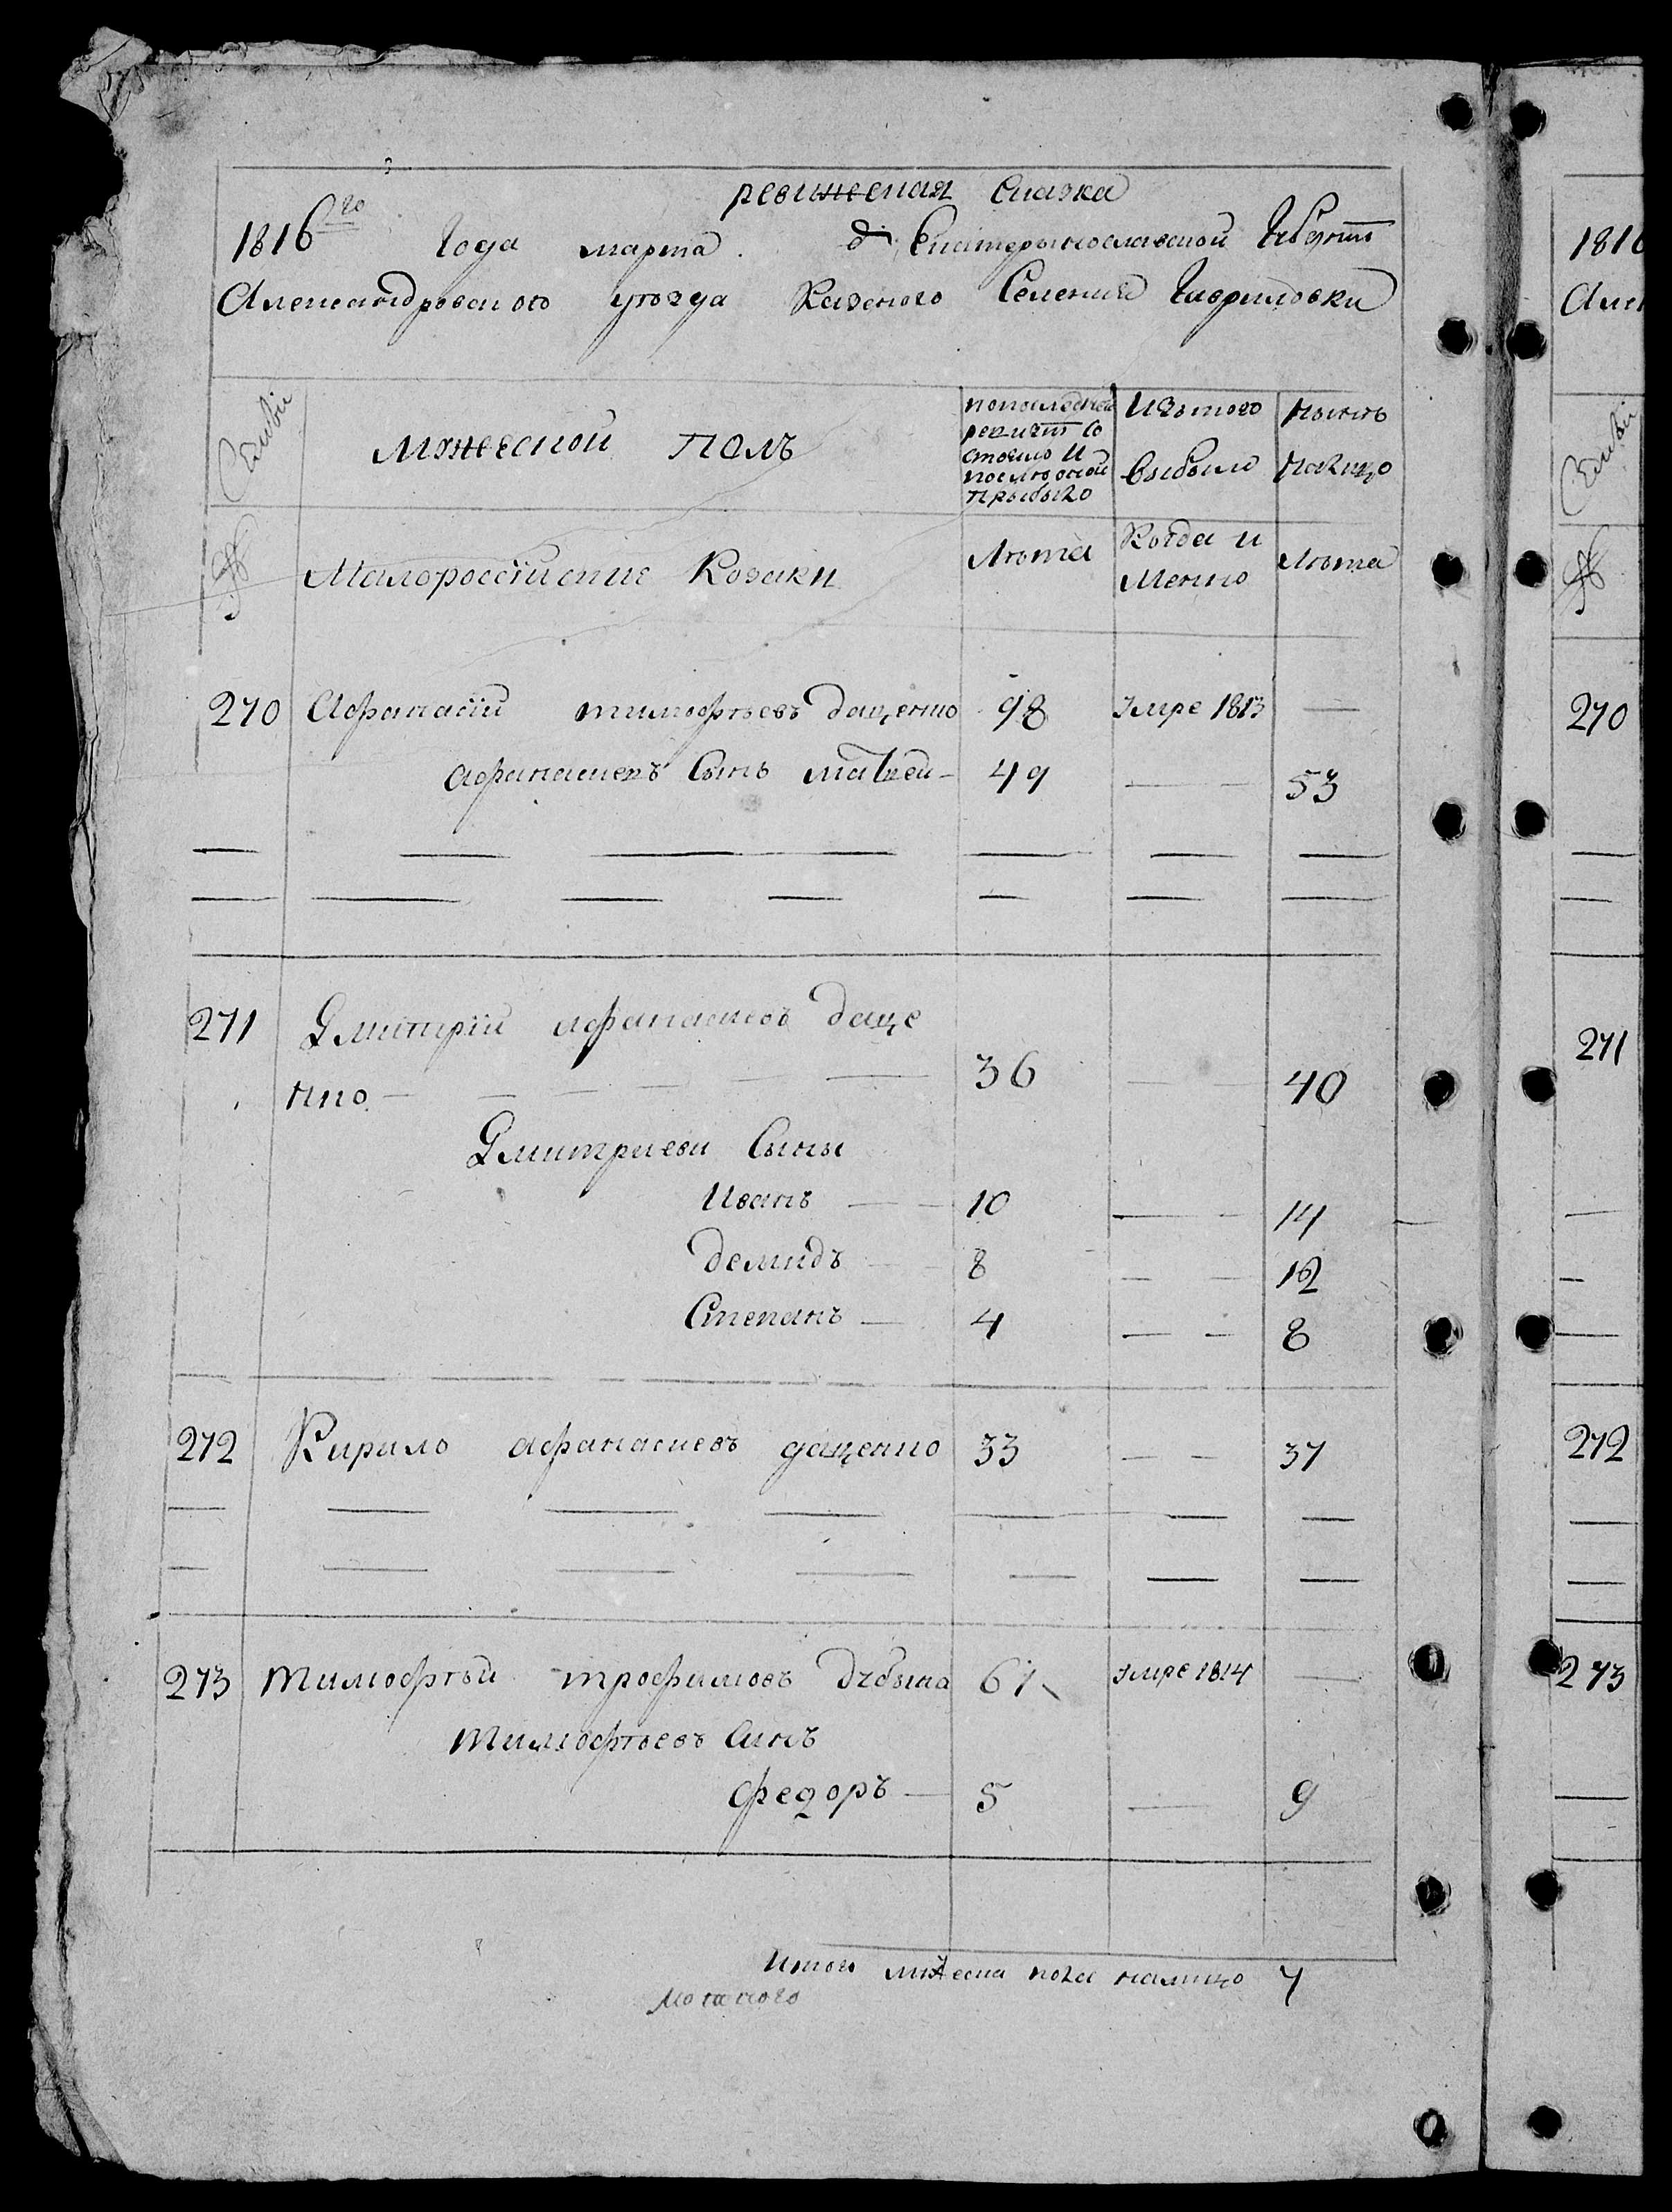 ревижская Сказка
1816го Года марта д Екатеринославской Губернїи
Александровского уѣзда Казеного Селения Гавриловки
Семьи Мужеской полъ по последней ревизїи со стояло и после оной прибыло Изътого выбыло Нынѣ налицо
№ Малороссїиские Козаки Лѣта Когда и Менно Лѣта
270 Афанасїй тимофѣевъ даценко 98 Умре 1813 —
Афанасиевъ Сынъ матвей — 49 — 53
271 Дмитрїй афанасиевъ даце
нко — 36 — 40
Дмитриеви Сыны
Иванъ — 10 — 14
демидъ — 8 — 12
Степанъ — 4 — 8
272 Кирило афанасиевъ даценко 33 — 37
273 тимофѣй трофимовъ дзюбина 61 умре 1814 —
тимофѣевъ Синъ
федоръ — 5 — 9
Итого мужеска пола налицо 7
1816
Алек
Семьи
№
270
271
272
273